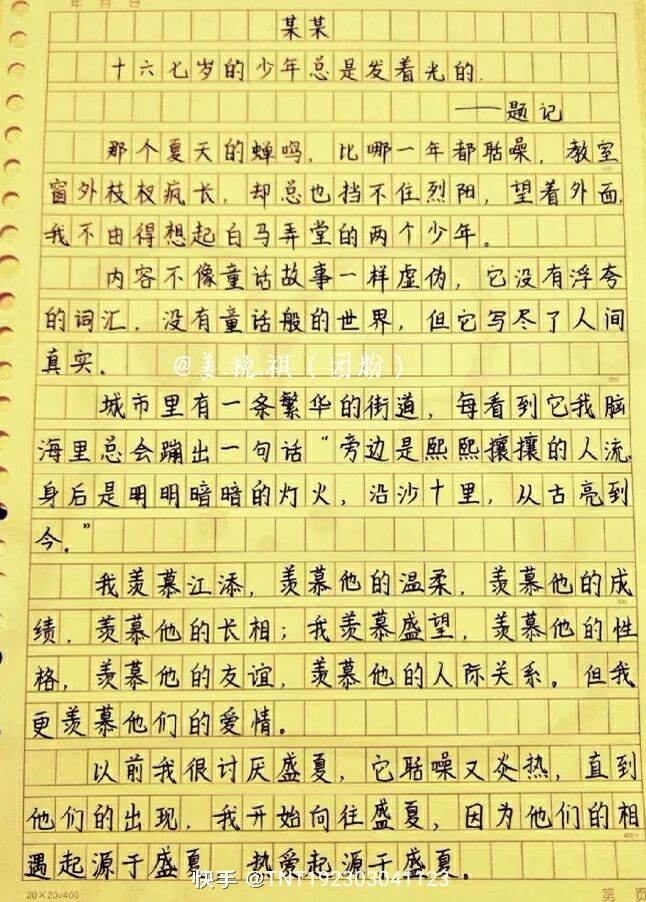 年 月 日
某某
十六七岁的少年总是发着光的.
——题记
那个夏天的蝉鸣，比哪一年都聒噪，教室
窗外枝杈疯长，却总也挡不住烈阳，望着外面，
我不由得想起白马弄堂的两个少年。
内容不像童话故事一样虚伪，它没有浮夸
的词汇，没有童话般的世界，但它写尽了人间
真实.
@姜挽祺（团粉）
城市里有一条繁华的街道，每看到它我脑
海里总会蹦出一句话“旁边是熙熙攘攘的人流，
身后是明明暗暗的灯火，沿沙十里，从古亮到
今。”
我羡慕江添，羡慕他的温柔，羡慕他的成
绩，羡慕他的长相；我羡慕盛望，羡慕他的性
格，羡慕他的友谊，羡慕他的人际关系。但我
更羡慕他们的爱情。
以前我很讨厌盛夏，它聒噪又炎热，直到
他们的出现，我开始向往盛夏，因为他们的相
遇起源于盛夏，热爱起源于盛夏。
快手 @TNT192303041123
20×20=400
第 页